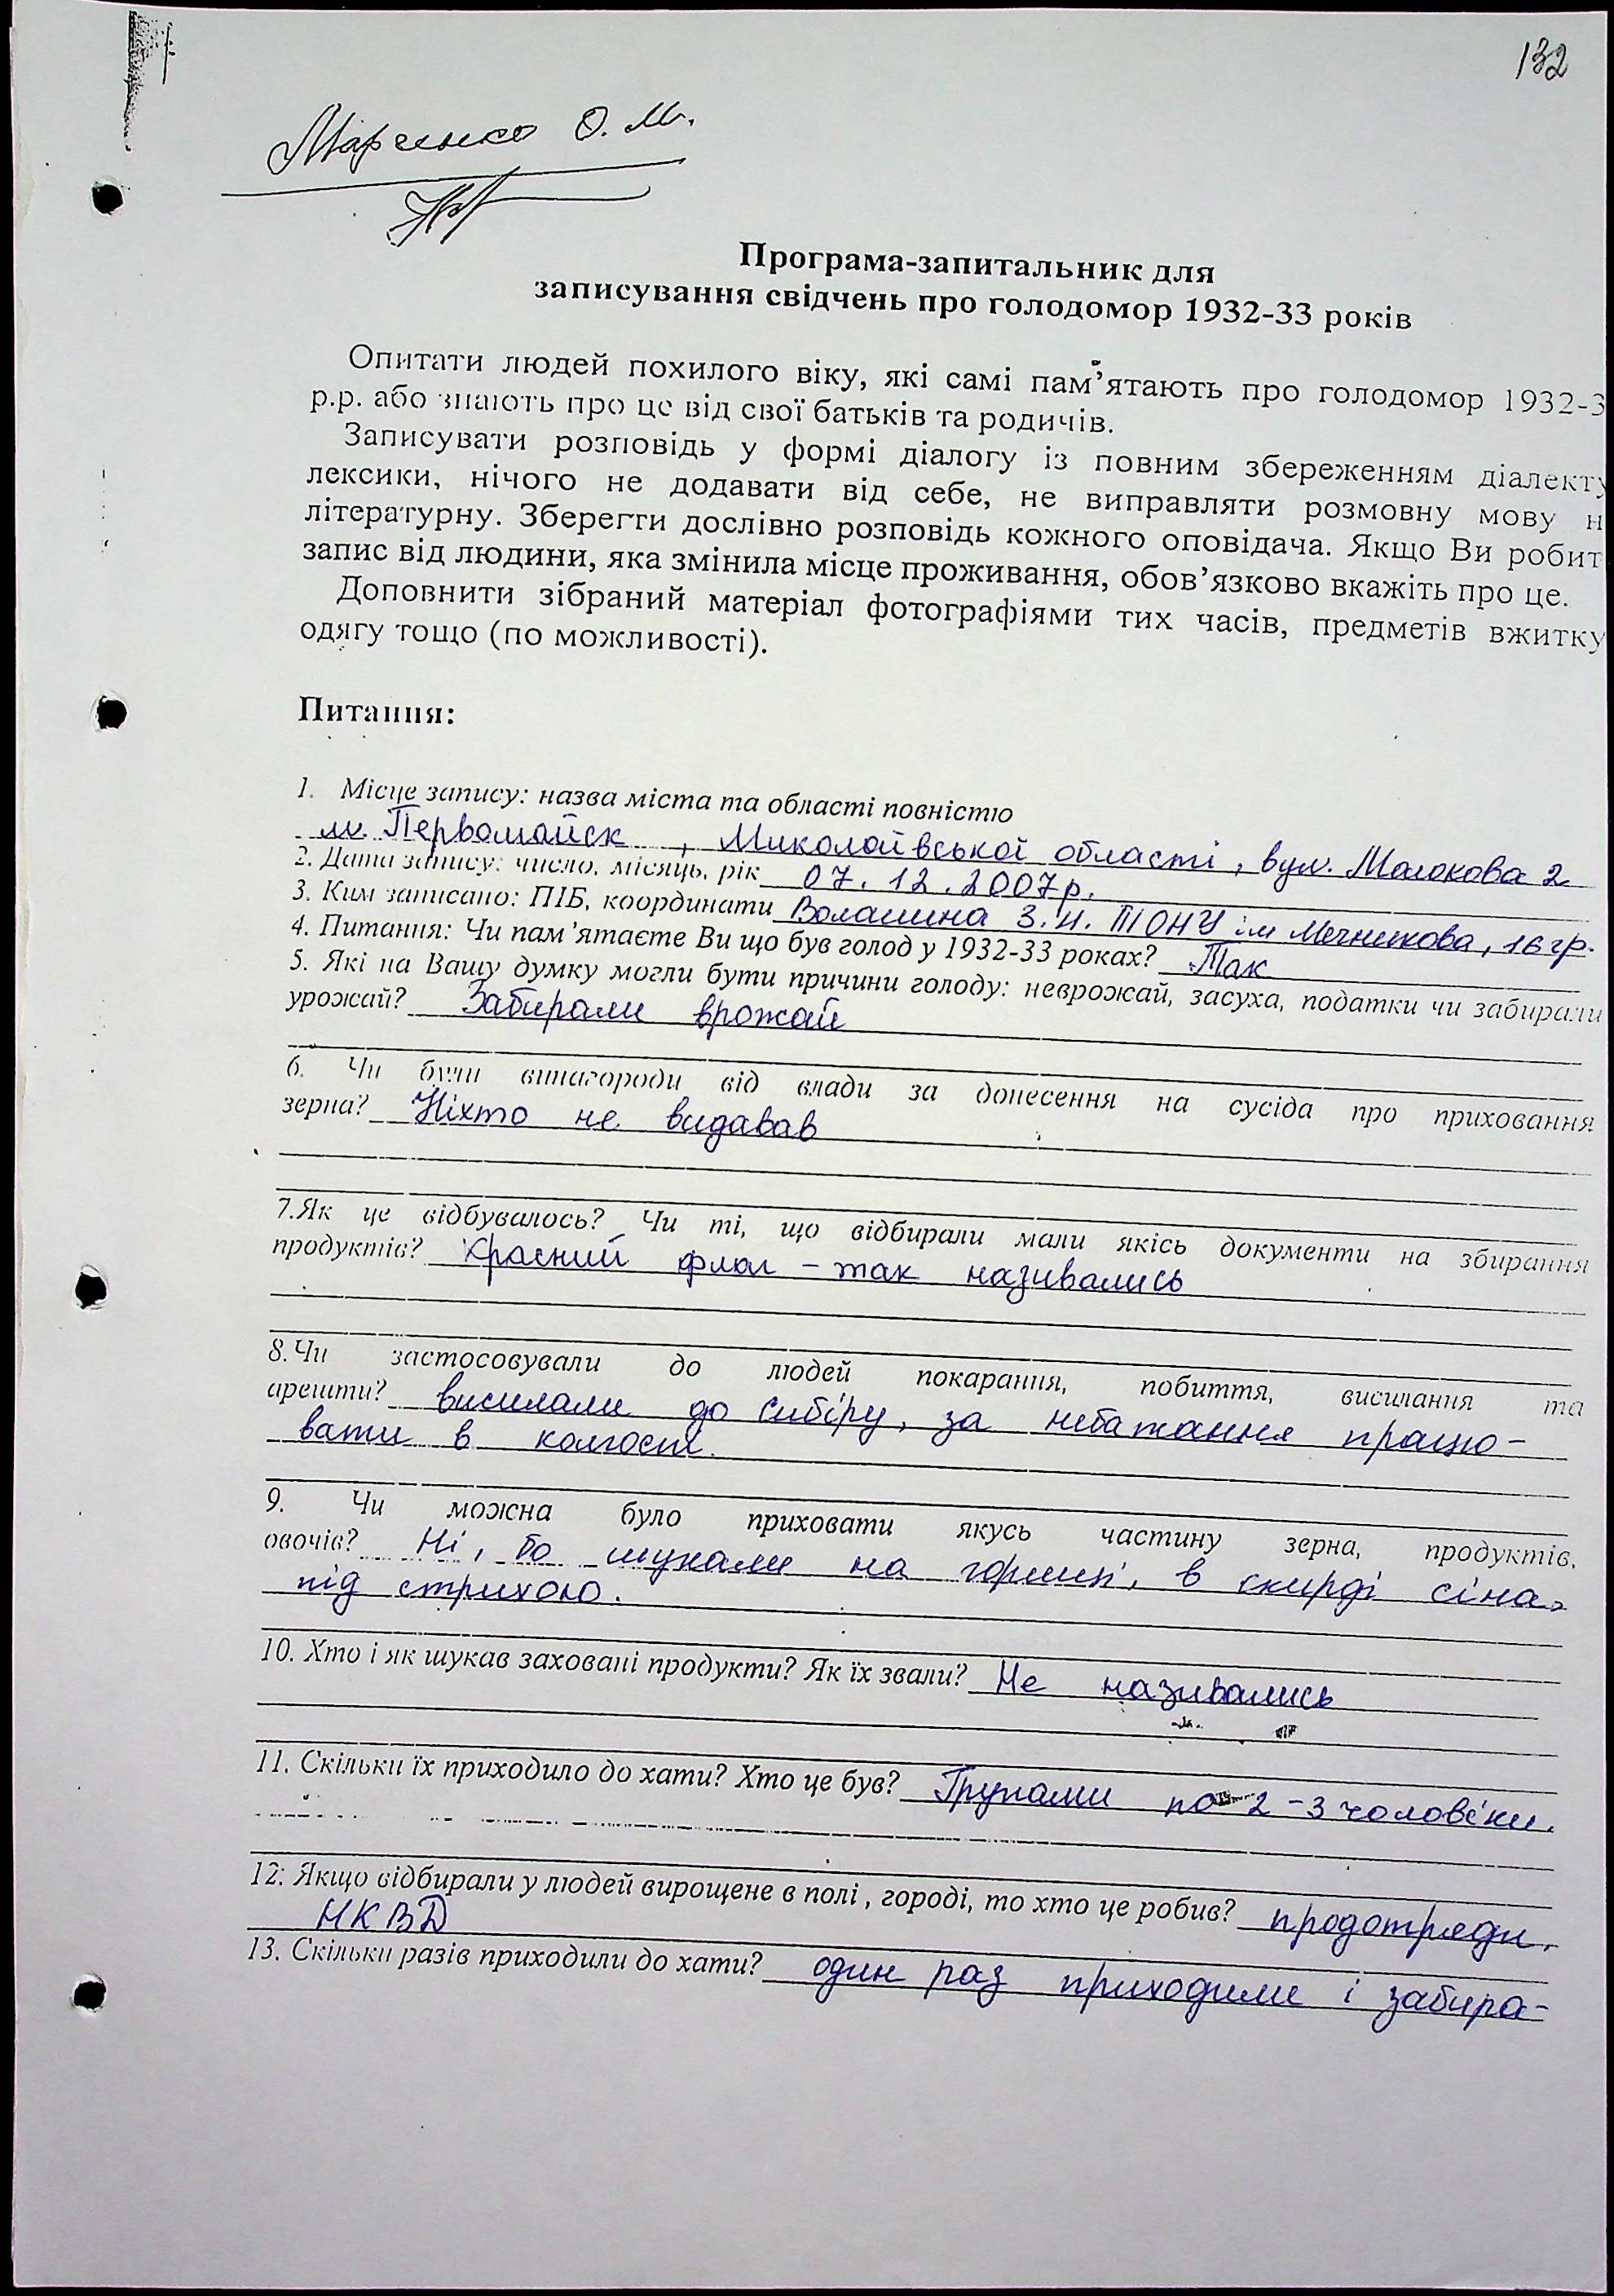 132
Марченко О. М.
Програма-запитальник для
записування свідчень про голодомор 1932-33 років
Опитати людей похилого віку, які самі пам’ятають про голодомор 1932-3
р.р. або знають про це від свої батьків та родичів.
Записувати розповідь у формі діалогу із повним збереженням діалекту
лексики, нічого не додавати від себе, не виправляти розмовну мову н
літературну. Зберегти дослівно розповідь кожного оповідача. Якщо Ви робит
запис від людини, яка змінила місце проживання, обов’язково вкажіть про це.
Доповнити зібраний матеріал фотографіями тих часів, предметів вжитку
одягу тощо (по можливості).
Питання:
1. Місце запису: назва міста та області повністю
м. Первомайск, Миколаївської області, вул. Молокова 2
2. Дата запису: число, місяць, рік 07.12.2007р.
3. Ким записано: ПІБ, координати Волашина З.И. ОНУ ім Мечникова, 16 гр.
4. Питання: Чи пам’ятаєте Ви що був голод у 1932-33 роках? Так
5. Які на Вашу думку могли бути причини голоду: неврожай, засуха, податки чи забирали
урожай? Забирали врожай
6. Чи були винагороди від влади за донесення на сусіда про приховання
зерна? Ніхто не видавав
7.Як це відбувалось? Чи ті, що відбирали мали якісь документи на збирання
продуктів? Красний флаг – так називались
8.Чи застосовували до людей покарання, побиття, висилання та
арешти? висилали до Сибіру, за небажання працю-
вати в колгоспі.
9. Чи можна було приховати якусь частину зерна, продуктів,
овочів? Ні, бо шукали на горищі, в скирді сіна,
під стрихою.
10. Хто і як шукав заховані продукти? Як їх звали? Не називались
11. Скільки їх приходило до хати? Хто це був? Групами по 2-3 чоловіки.
12. Якщо відбирали у людей вирощене в полі, городі, то хто це робив? продотряди,
НКВД
13. Скільки разів приходили до хати? один раз приходили і забира-